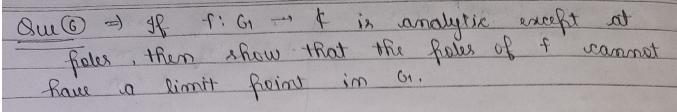 Que ⑥ ⇒ If f: G → ₵ is analytic except at
poles, then show that the poles of f cannot
have a limit point in G.